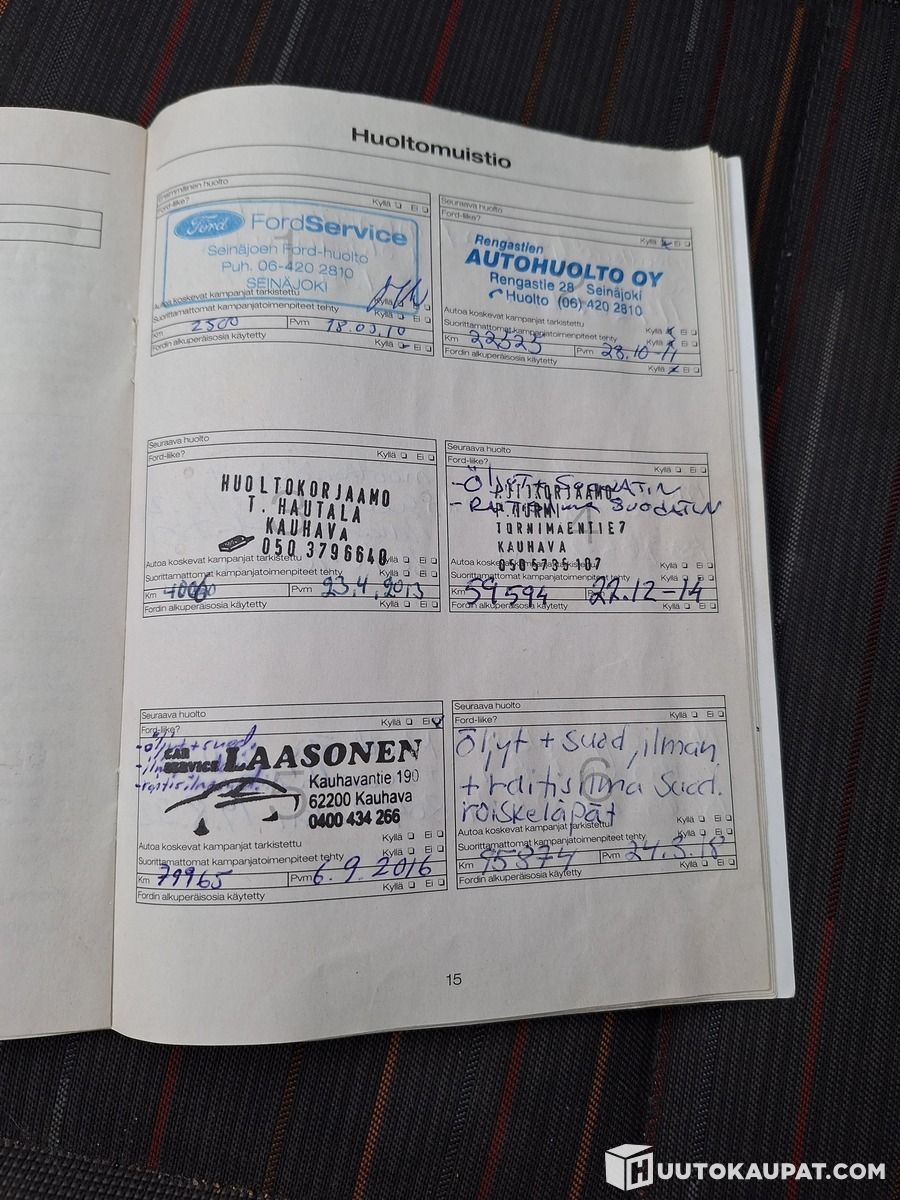 Huoltomuistio
Ensimmäinen huolto
Ford-liike?
Kyllä Ei
Ford FordService
Seinäjoen Ford-huolto
Puh. 06-420 2810
SEINÄJOKI
Autoa koskevat kampanjat tarkistettu
Kyllä Ei
Suorittamattomat kampanjatoimenpiteet tehty
Kyllä Ei
Km 2500 Pvm 18.03.10
Fordin alkuperäisosia käytetty
Kyllä Ei
Seuraava huolto
Ford-liike?
Kyllä Ei
Rengastien
AUTOHUOLTO OY
Rengastie 28 Seinäjoki
Huolto (06) 420 2810
Autoa koskevat kampanjat tarkistettu
Kyllä Ei
Suorittamattomat kampanjatoimenpiteet tehty
Kyllä Ei
Km 22325 Pvm 28.10-11
Fordin alkuperäisosia käytetty
Kyllä Ei
Seuraava huolto
Ford-liike?
Kyllä Ei
HUOLTOKORJAAMO
T. HAUTALA
KAUHAVA
050 3796640
Autoa koskevat kampanjat tarkistettu
Kyllä Ei
Suorittamattomat kampanjatoimenpiteet tehty
Kyllä Ei
Km Pvm 23.4.2013
Fordin alkuperäisosia käytetty
Kyllä Ei
Seuraava huolto
Ford-liike?
Kyllä Ei
- Öljyt + SUODATIN
- RAITISILMA SUODATIN
TORNIMAENTIE7
KAUHAVA
Autoa koskevat kampanjat tarkistettu
Suorittamattomat kampanjatoimenpiteet tehty
Kyllä Ei
Km 59594 22.12-14
Fordin alkuperäisosia käytetty
Kyllä Ei
Seuraava huolto
Ford-liike?
Kyllä Ei
- öljyt + suod.
CAR SERVICE LAASONEN
Kauhavantie 190
62200 Kauhava
0400 434 266
Autoa koskevat kampanjat tarkistettu
Kyllä Ei
Suorittamattomat kampanjatoimenpiteet tehty
Kyllä Ei
Km 79965 Pvm 6.9.2016
Fordin alkuperäisosia käytetty
Kyllä Ei
Seuraava huolto
Ford-liike?
Kyllä Ei
6
Öljyt + suod, ilman
+ raitisilma suod.
roiskeläpät
Autoa koskevat kampanjat tarkistettu
Kyllä Ei
Suorittamattomat kampanjatoimenpiteet tehty
Kyllä Ei
Km 95874 Pvm 24.3.18
Fordin alkuperäisosia käytetty
Kyllä Ei
15
HUUTOKAUPAT.COM